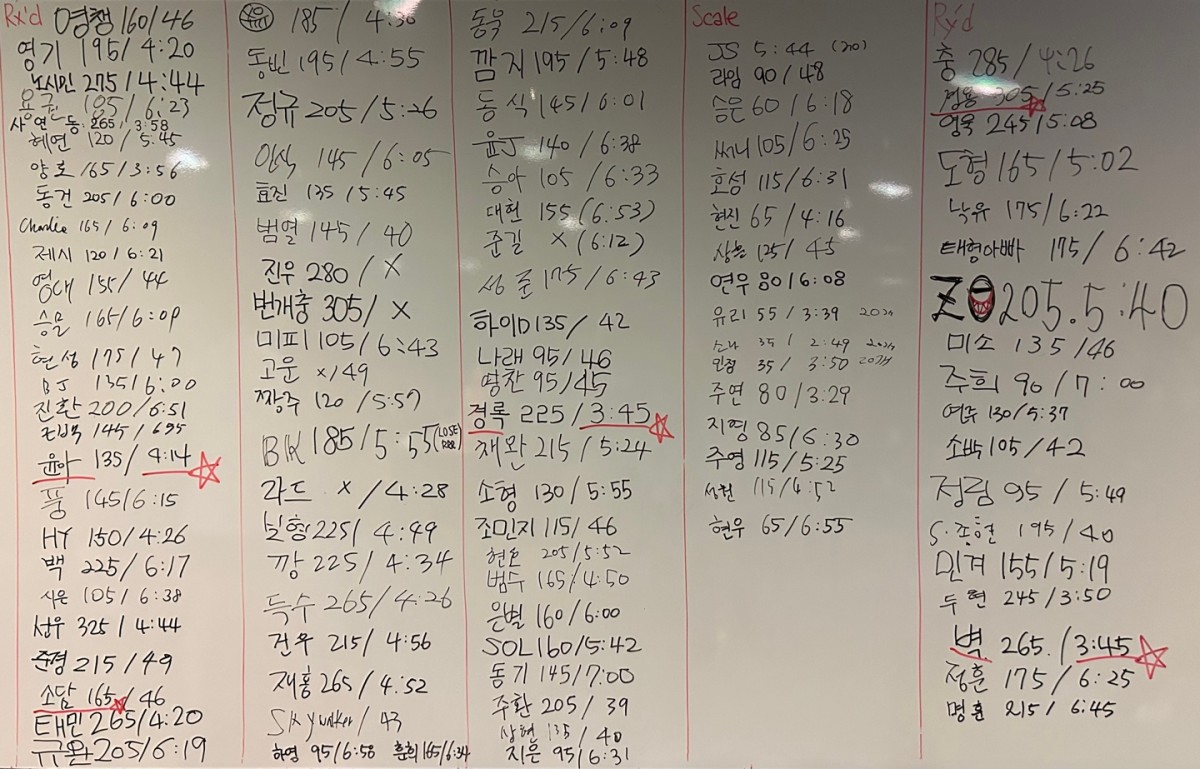 Rx'd 영챙 160/46
영기 195/4:20
노시민 275/4:44
용권 105/6:23
사연동 265/3:58
혜연 120/5:45
양호 165/3:56
동건 205/6:00
Charlie 165/6:09
제시 120/6:21
영대 155/44
승물 165/6:09
현성 175/47
BJ 135/6:00
진환 200/6:51
145/
윤아 135/4:14
풍 145/6:15
HY 150/4:26
백 225/6:17
시은 105/6:38
선우 325/4:44
준경 215/49
소담 165/46
태민 265/4:20
규완 205/6:19
185/4:30
동빈 195/4:55
정규 205/5:26
인식 145/6:05
효진 135/5:45
범열 145/40
진우 280/X
번개충 305/X
미피 105/6:43
고운 x/49
짱주 120/5:57
BK 185/5:55 (LOSE)
라드 x/4:28
보형 225/4:49
깡 225/4:34
득수 265/4:26
건우 215/4:56
재홍 265/4:52
Skywalker/43
하영 95/6:58 훈희 165/6:34
동욱 215/6:09
깜지 195/5:48
동식 145/6:01
윤J 140/6:38
승아 105/6:33
대헌 155 (6:53)
준길 X (6:12)
성준 175/6:43
하이D 135/42
나래 95/46
명찬 95/45
경록 225/3:45
재완 215/5:24
소형 130/5:55
조민지 115/46
현호 205/5:52
범수 165/4:50
은별 160/6:00
SOL 160/5:42
동기 145/7:00
주환 205/39
상현 135/40
지은 95/6:31
Scale
JS 5:44 (20)
라임 90/48
승은 60/6:18
써니 105/6:25
호성 115/6:31
현진 65/4:16
상훈 125/45
연우 80/6:08
유리 55/3:39
소나 35/2:49
민정 35/3:50
주연 80/3:29
지영 85/6:30
주영 115/5:25
115/4:52
현우 65/6:55
Rx'd
충 285/4:26
정용 305/5:25
영욱 245/5:08
도형 165/5:02
낙유 175/6:22
태형아빠 175/6:42
205.5:40
미소 135/46
주희 90/7:00
연주 130/5:37
소박 105/42
정림 95/5:49
S.종현 195/40
민겨 155/5:19
두현 245/3:50
벽 265./3:45
정훈 175/6:25
명훈 215/6:45